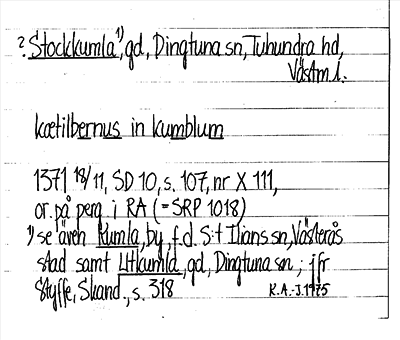 ? Stockkumla ¹⁾, gd, Dingtuna sn, Tuhundra hd,
Västm. l.
kætilbernus in kumblum
1371 18/11, SD 10, s. 107, nr X 111,
or. på perg i RA (= SRP 1018)
¹⁾ se även Kumla, by, f.d. S:t Ilians sn, Västerås
stad samt Litkumla, gd, Dingtuna sn ; jfr
Styffe, Skand., s. 318
K.A.-J. 1975